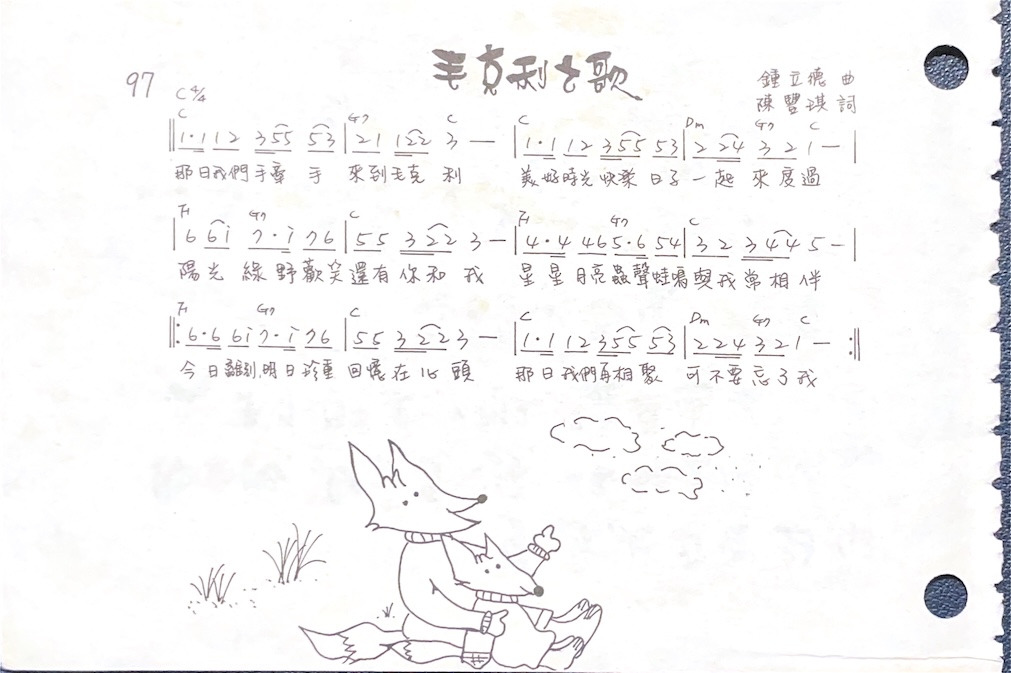 毛克利之歌
97
C 4/4
鍾立德 曲
陳豐琪 詞
C G7 C C Dm G7 C
1·1 12 355 53 | 21 122 3 — | 1·1 12 355 53 | 2 224 3 2 1 — |
那日我們手牽 手 來到毛克 利 美好時光快樂 日子 一起 來度過
F G7 C F G7 C
6 6i 7·i 76 | 55 322 3 — | 4·4 46 5·6 54 | 32 344 5 — |
陽光 綠野歡笑還有你和 我 星星月亮蟲聲蛙鳴與我常相伴
F G7 C C Dm G7 C
6·6 6i 7·i 76 | 55 322 3 — | 1·1 12 355 53 | 2 224 321 — :||
今日離別,明日珍重 回憶在心頭 那日我們再相聚 可不要忘了我